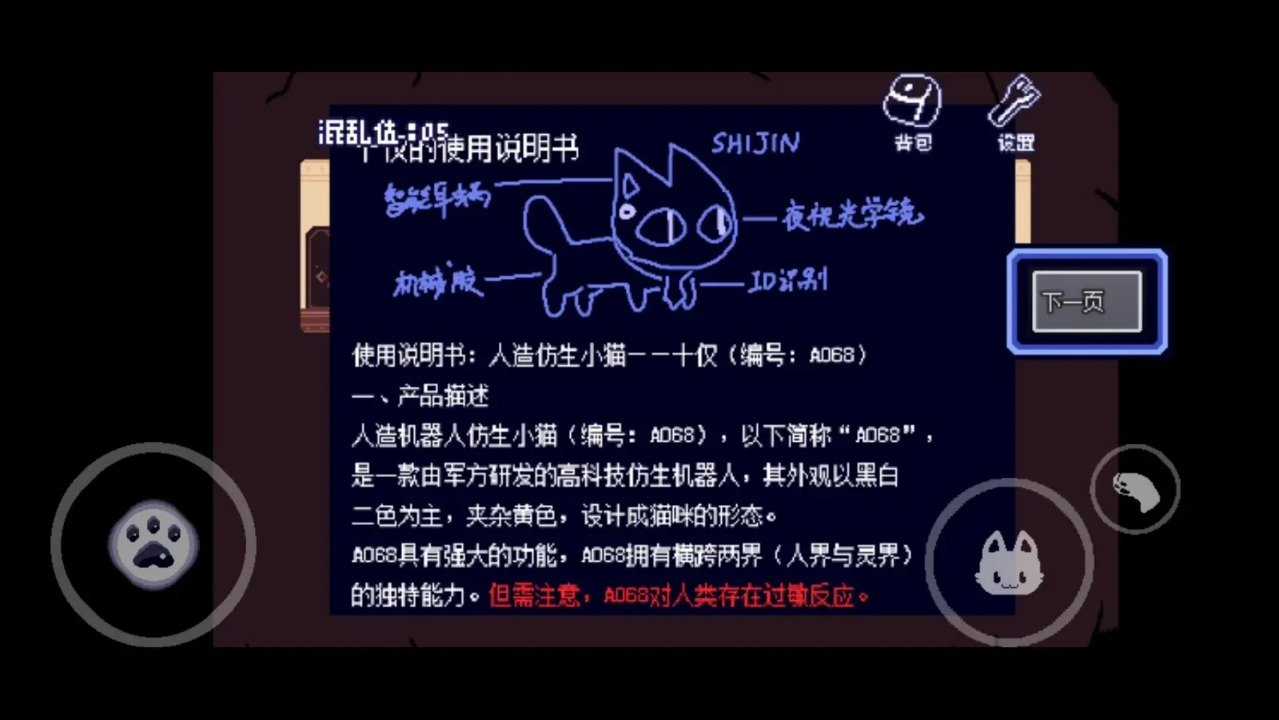 混乱值:05
背包
设置
十仅的使用说明书
SHIJIN
智能耳蜗
夜视光学镜
机械腿
ID识别
下一页
使用说明书：人造仿生小猫——十仅（编号：A068）
一、产品描述
人造机器人仿生小猫（编号：A068），以下简称“A068”，
是一款由军方研发的高科技仿生机器人，其外观以黑白
二色为主，夹杂黄色，设计成猫咪的形态。
A068具有强大的功能，A068拥有横跨两界（人界与灵界）
的独特能力。但需注意，A068对人类存在过敏反应。